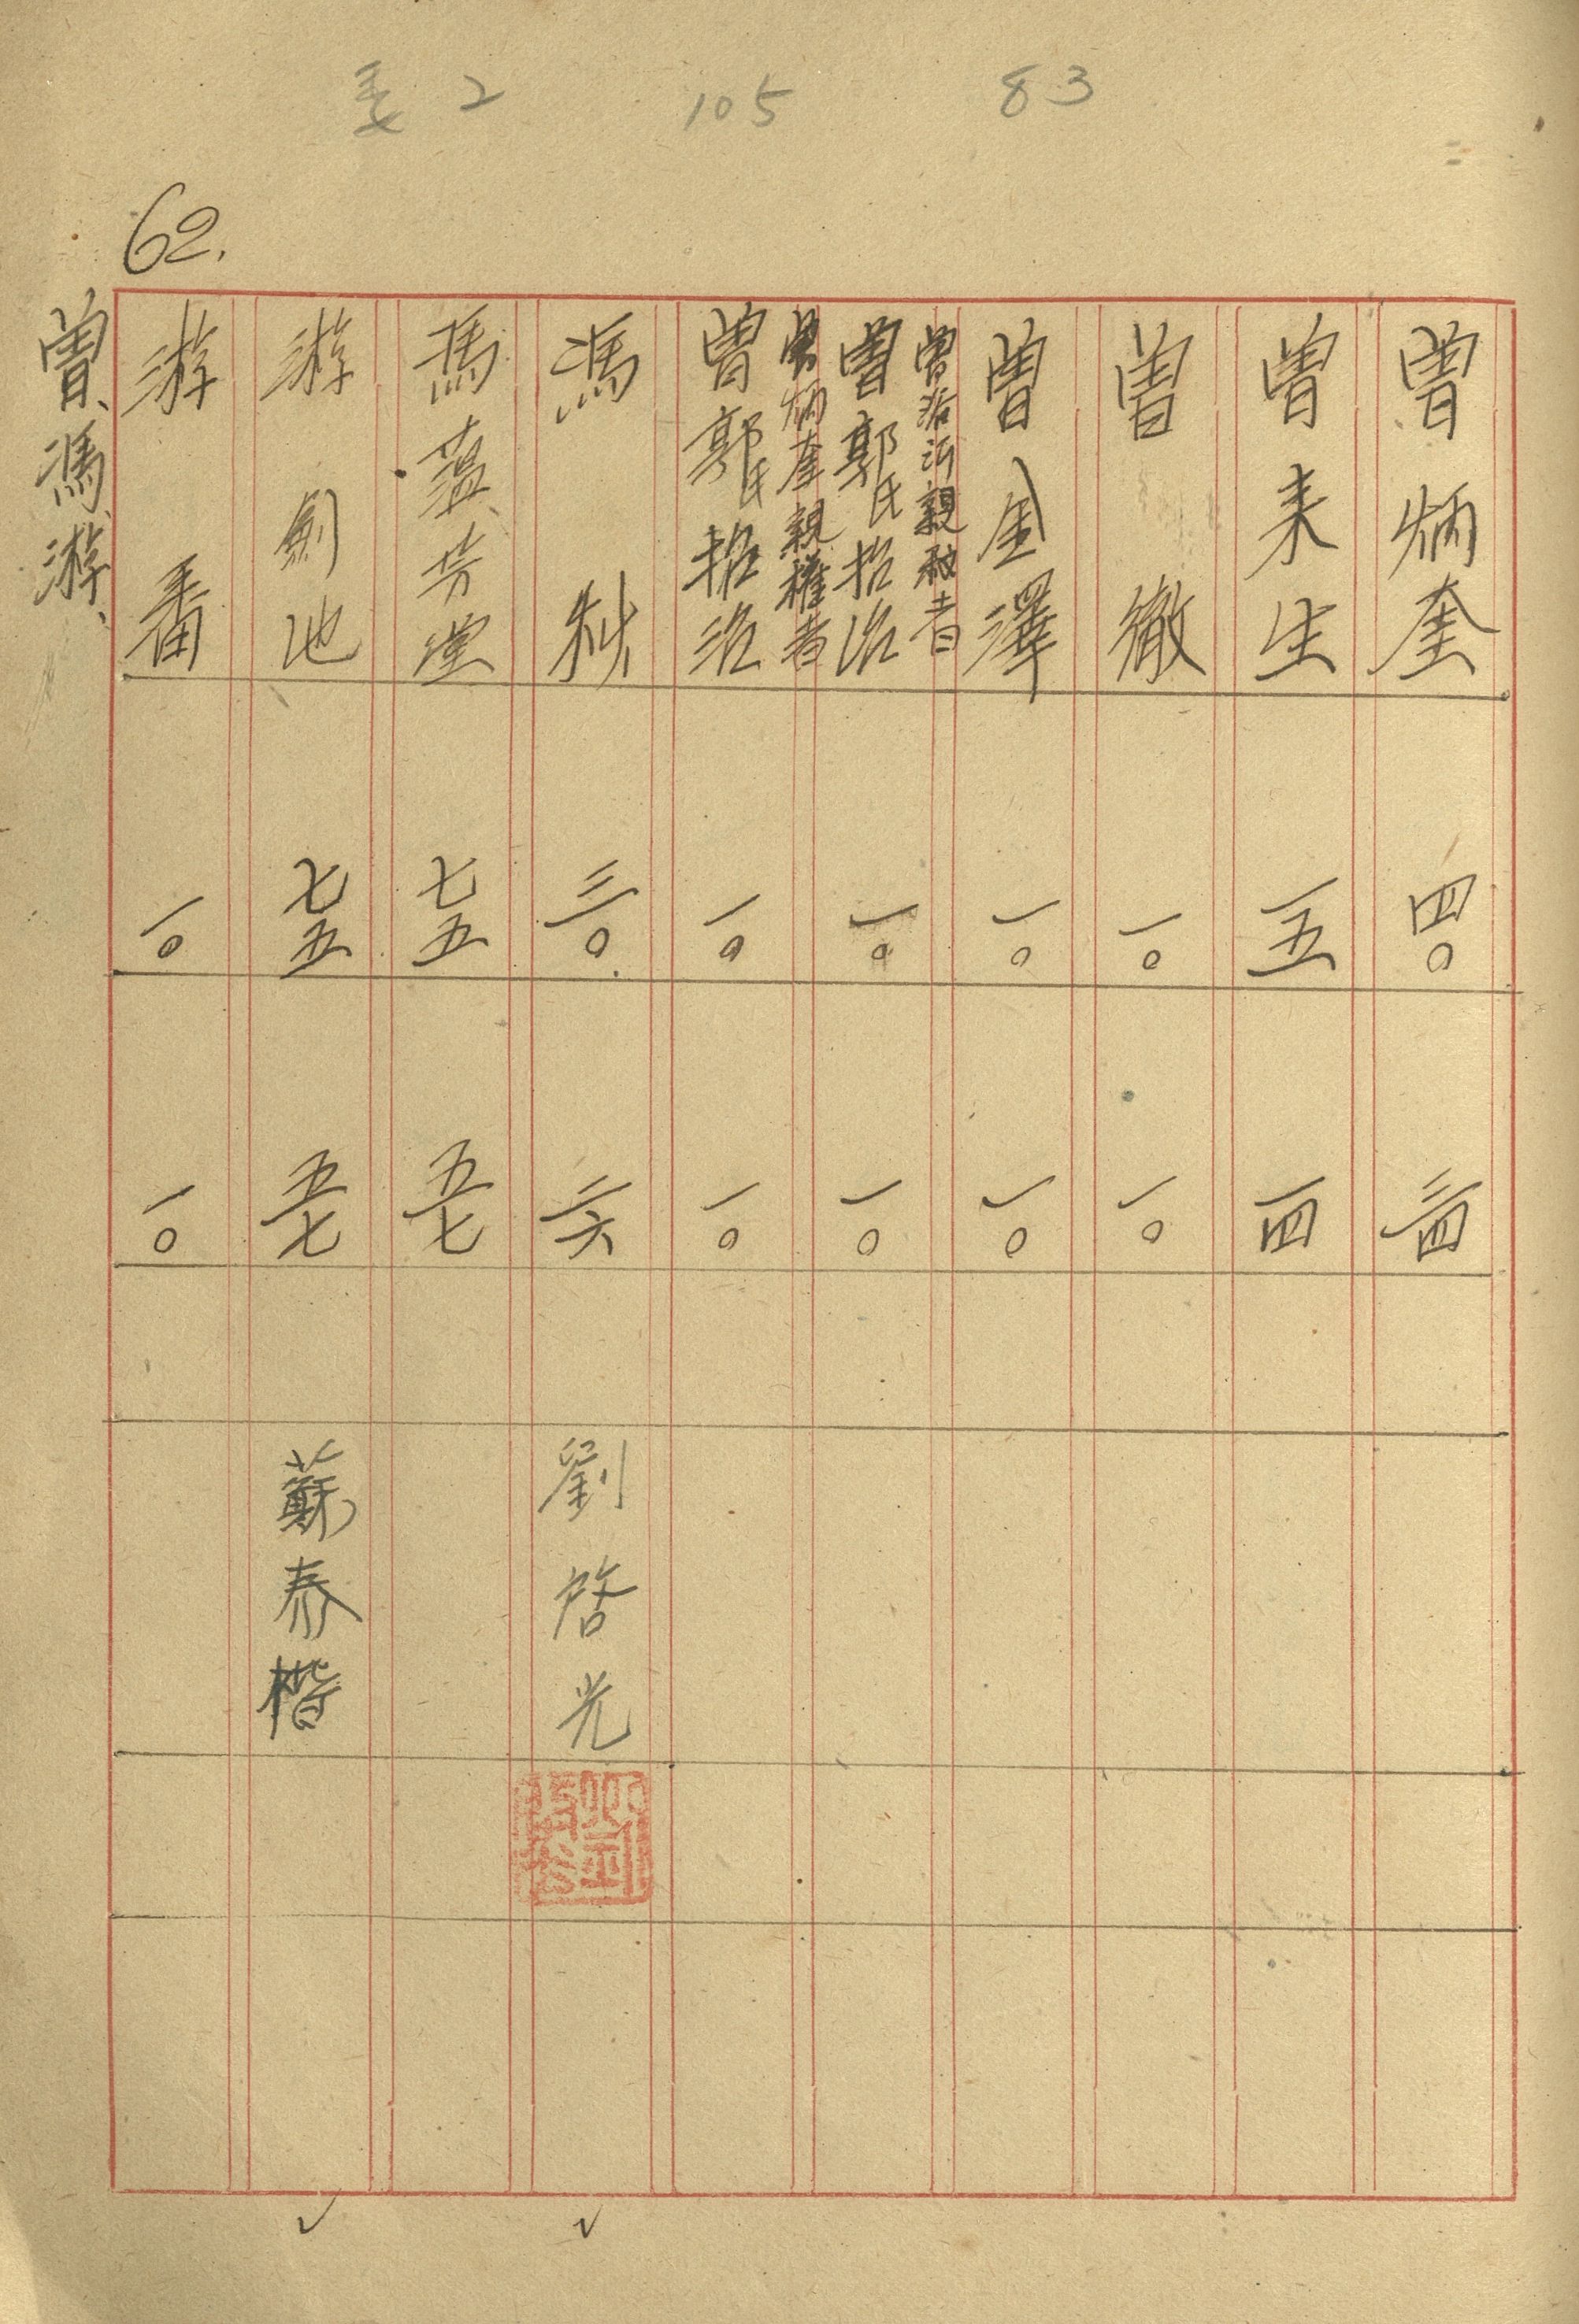 2
105
83
62.
曽炳奎
四〇
三四
曽来生
一五
一四
曽徹
一〇
一〇
曽金澤
一〇
一〇
曽 親权者
曽郭氏招治
一〇
一〇
曽炳奎親權者
曽郭氏招治
一〇
一〇
馮秋
三〇
二六
劉啓光
馬蘊芳堂
七五
五七
游劍池
七五
五七
蘇泰楷
游番
一〇
一〇
曽、馮、游、